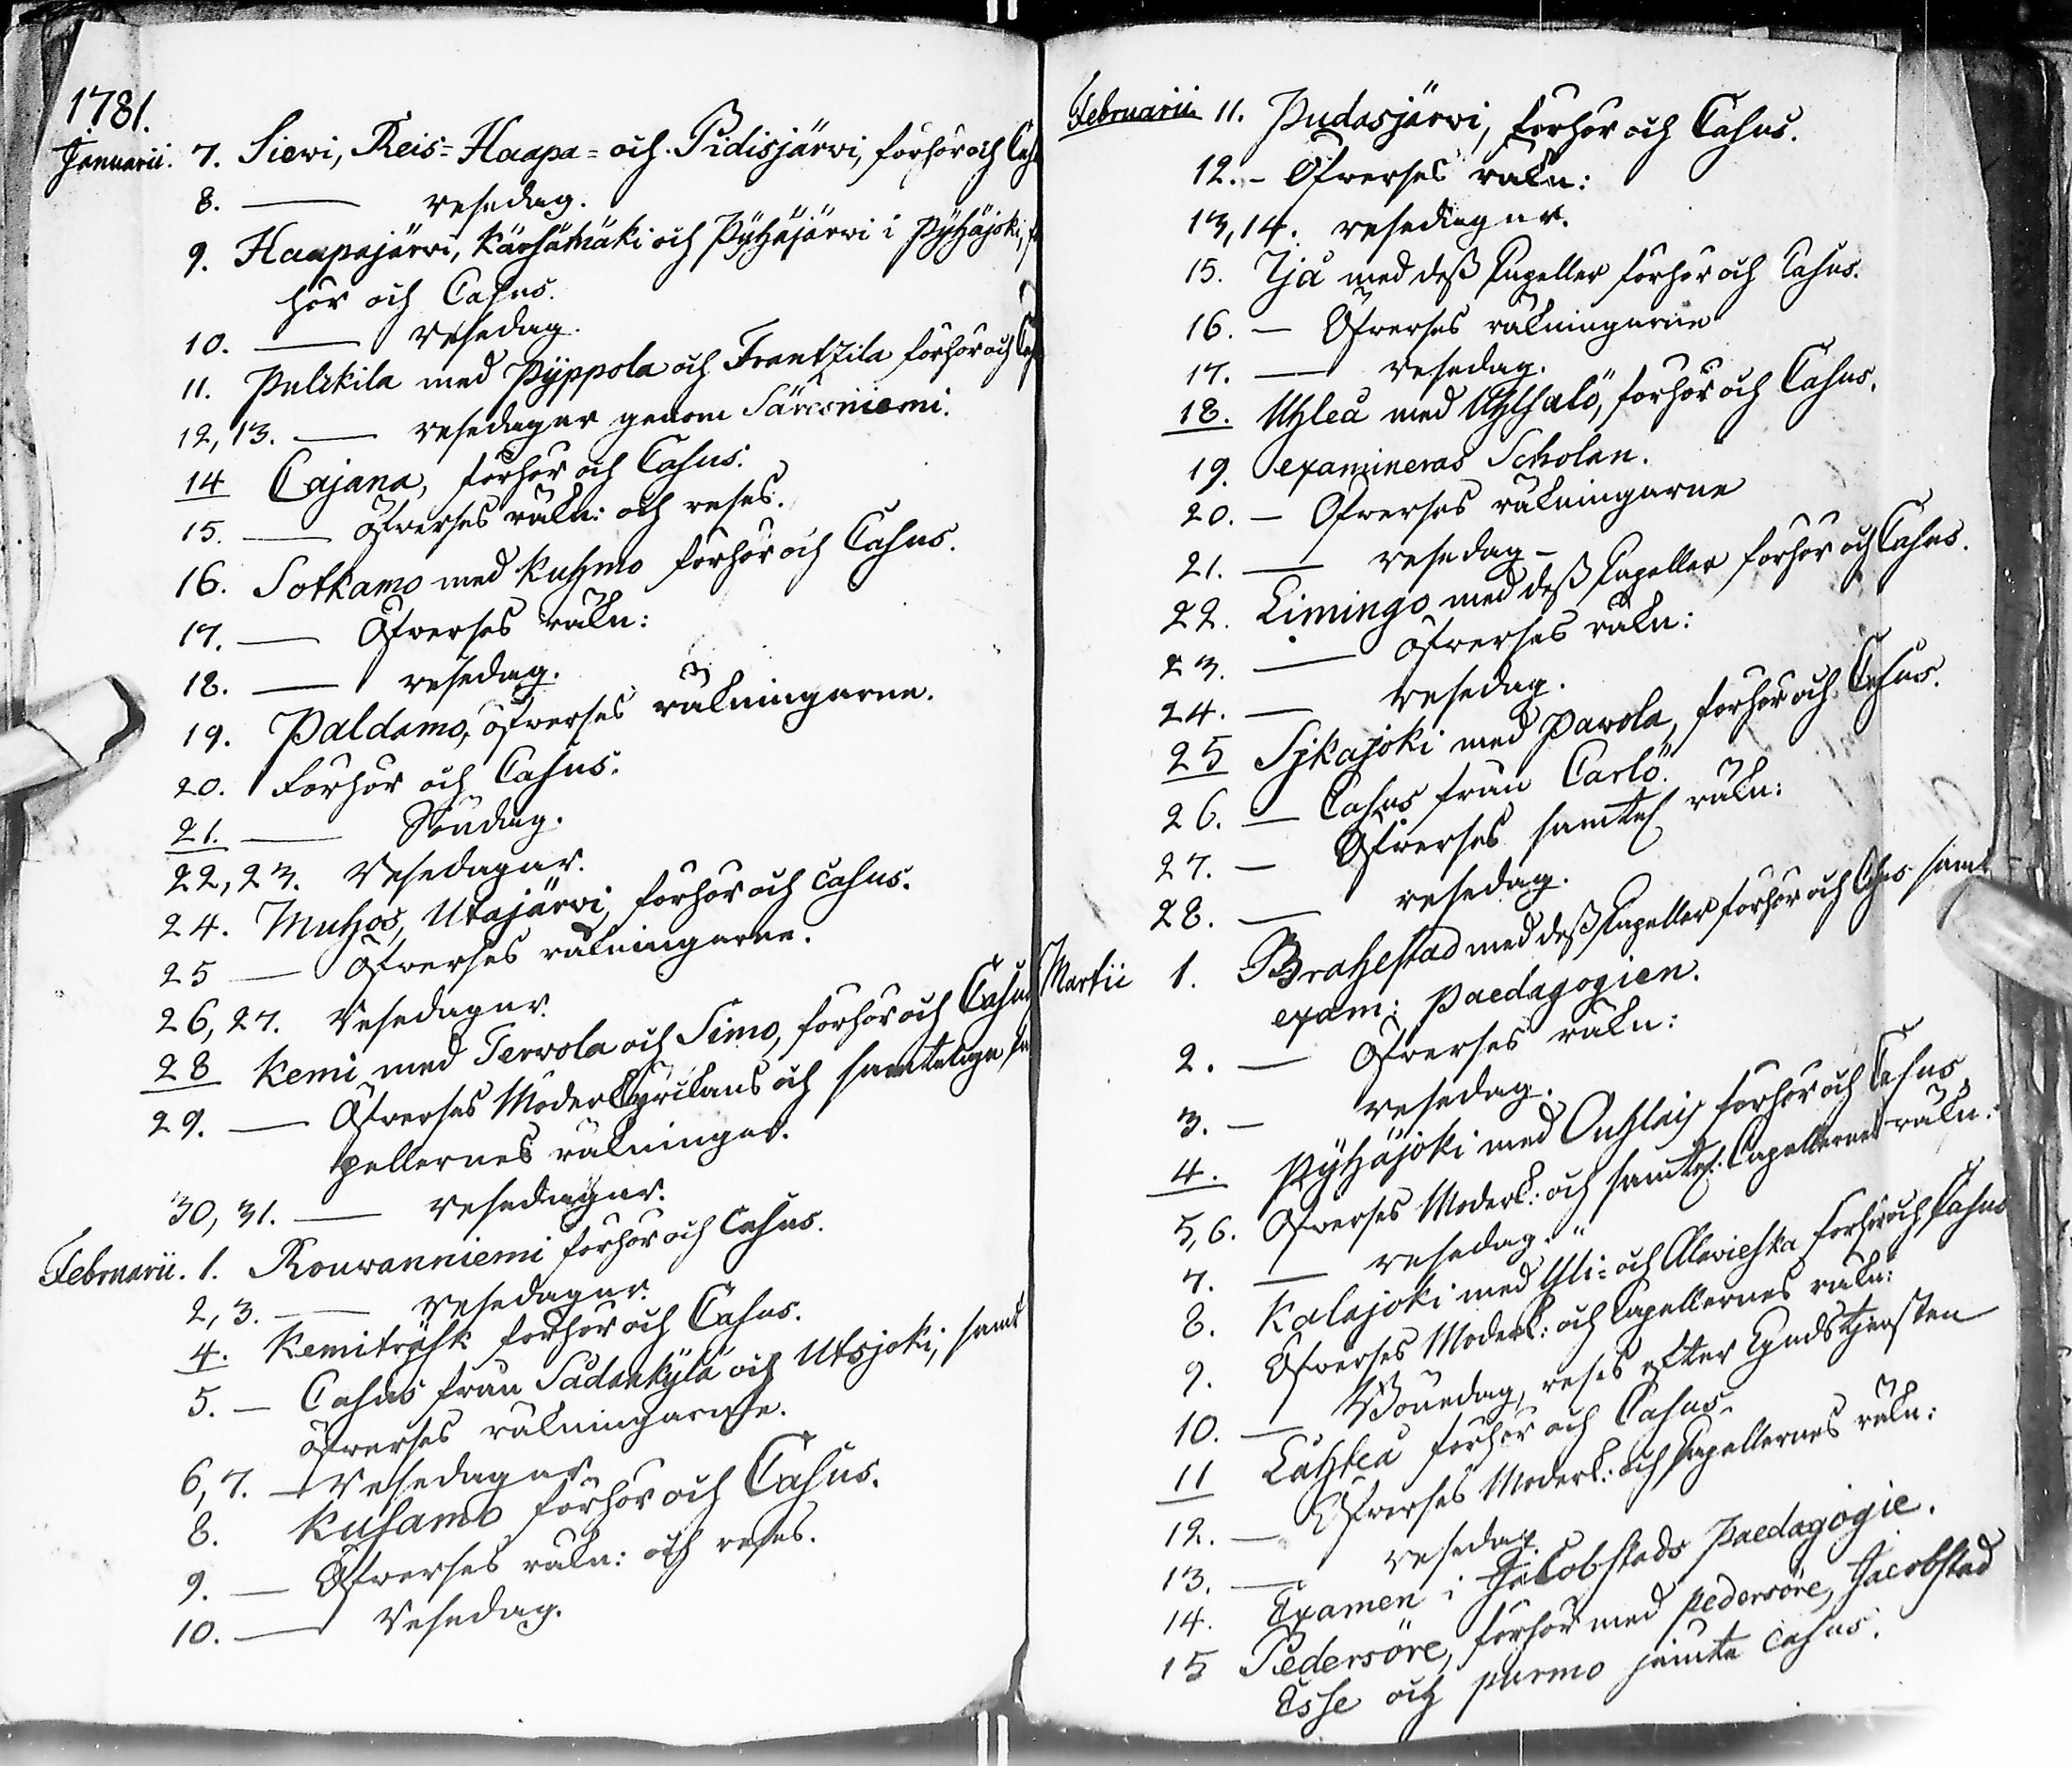 1781.
Januarii. 7. Siewi, Reis= Haapa= och Pidisjärwi, förhör och Cas
8. — resedag.
9. Haapajärwi, Kärsämäki och Pyhäjärwi i Pyhäjoki, för
hör och Casus.
10. — resedag.
11. Pulckila med Pyppola och Frantzila förhör och Cas
12, 13. — resedagar genom Säresniemi.
14 Cajana, förhör och Casus.
15. — öfverses räkn: och reses.
16. Sotkamo med Kuhmo förhör och Casus.
17. — Öfverses räkn:
18. — resedag.
19. Paldamo, öfverses räkningarne.
20. Förhör och Casus.
21. — Söndag.
22, 23. Resedagar.
24. Muhos, Utajärwi, förhör och casus.
25 — Öfverses räkningarne.
26, 27. Resedagar.
28 Kemi med Terwola och Simo, förhör och Casus
29. — Öfverses Moderkyrkans och samtelige Ca
pellernes räkningar.
30, 31. — resedagar.
Februarii. 1. Rouwanniemi förhör och casus.
2, 3. — resedagar.
4. Kemiträsk förhör och Casus.
5. — Casus från Sådankylä och Utsjoki, samt
öfverses räkningarne.
6, 7. — Resedagar
8. Kusamo förhör och Casus.
9. — Öfverses räkn: och reses.
10. — Resedag.
Februarii 11. Pudasjärwi, förhör och Casus.
12. — Öfverses räkn:
13, 14. resedagar.
15. Ijå med dess Capeller förhör och Casus.
16. — Öfverses räkningarne
17. — resedag.
18. Uhleå med Uhlsalö, förhör och Casus.
19. examineras Scholan.
20. — Öfverses räkningarne
21. — resedag —
22. Limingo med dess Capeller förhör och Casus.
23. — öfverses räkn:
24. — resedag.
25 Sjkajoki med Pawola, förhör och Casus.
26. — Casus från Carlö.
27. — Öfverses samtel räkn:
28. — resedag.
Martii 1. Brahestad med dess Capeller förhör och Casus samt
exam: Paedagogien.
2. — Öfverses räkn:
3. — resedag.
4. Pyhäjoki med Ouhlais förhör och Casus
5, 6. Öfverses Moderk: och samtel: Capellernes räkn:
7. — resedag.
8. Kalajoki med Yli= och Alawieska förhör och Casus
9. Öfverses Moderk: och Capellernes räkn:
10. — Bönedag, reses efter Gudstjensten
11 Lahteå förhör och Casus.
12. — Öfverses Moderk: och Capellernes räkn:
13. — resedag.
14. Examen i Jacobstads Paedagogie.
15 Pedersöre, förhör med Pedersöre, Jacobstad
Esse och Purmo jämte casus.